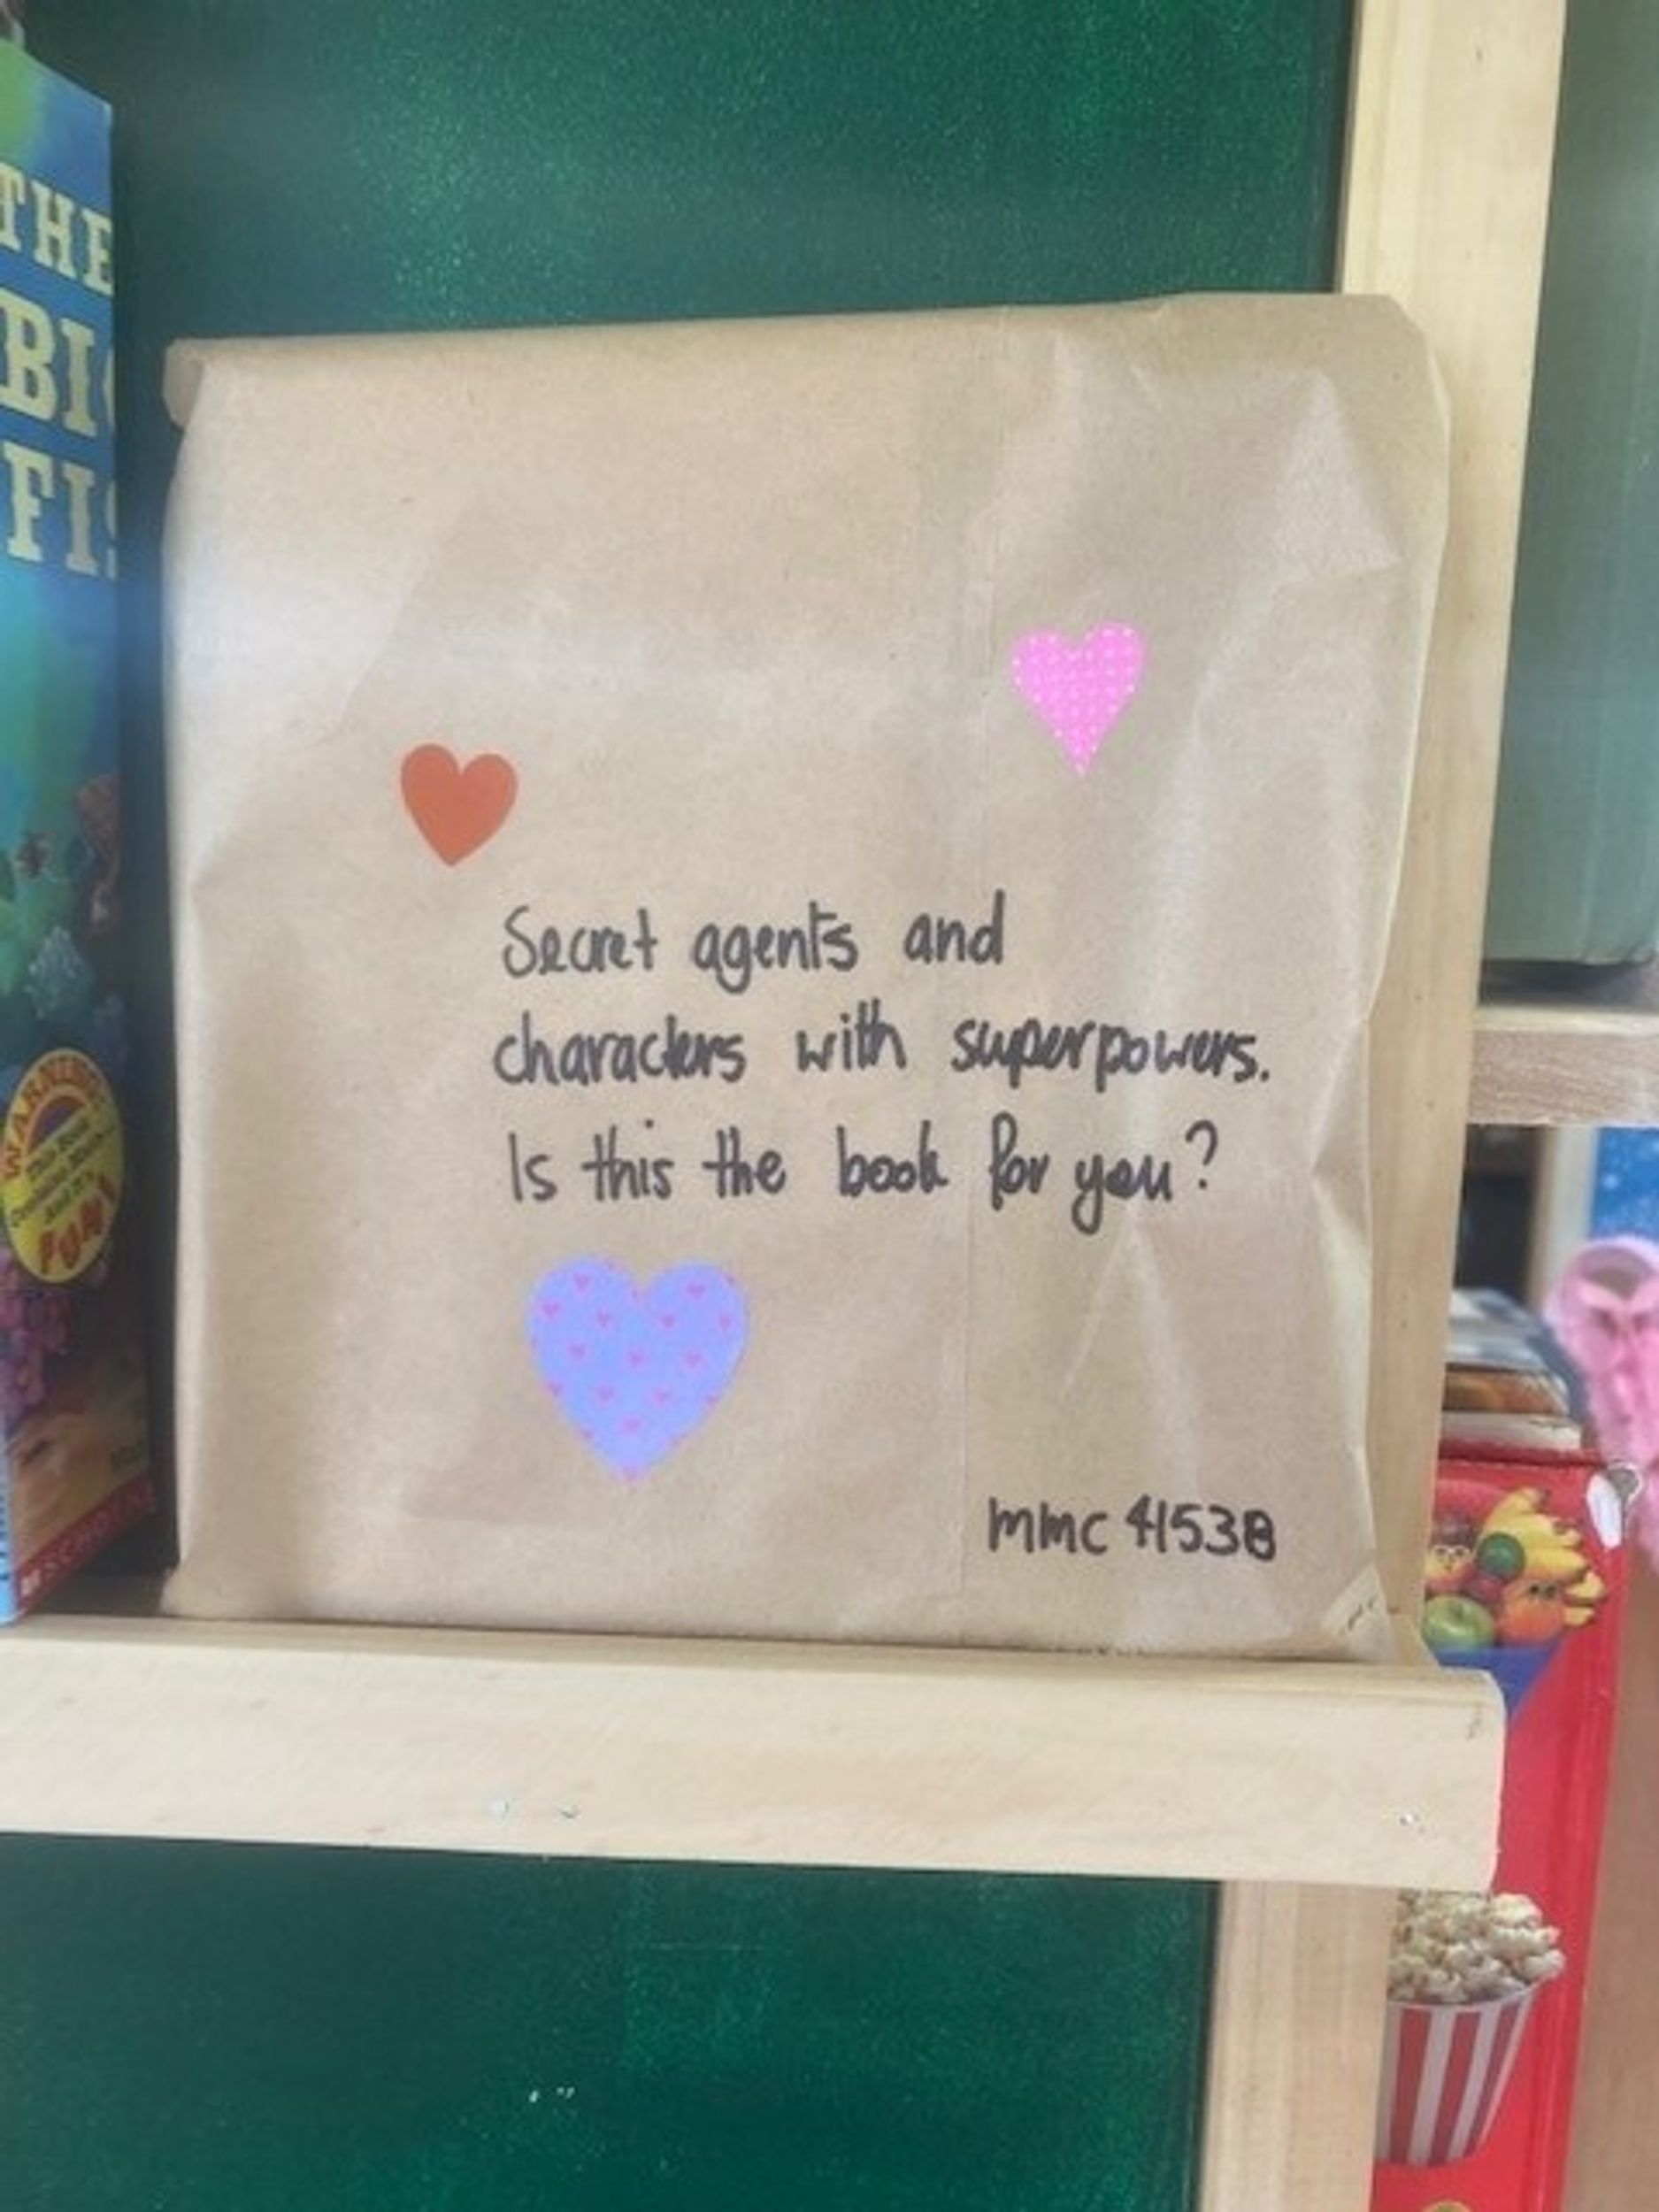 THE
BI
FI
WARNING!
FUN!
SCHOLASTIC
Secret agents and
characters with superpowers.
Is this the book for you?
MMC 41538